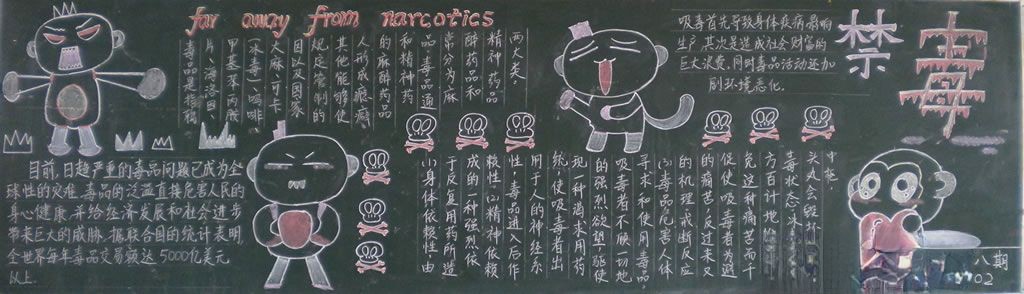 far away from narcotics
禁毒
毒品是指鸦
片、海洛因、
甲基苯丙胺
（冰毒）、吗啡、
大麻、可卡
因以及国家
规定管制的
其他能够使
人形成瘾癖
的麻醉药品
和精神药
品。毒品通
常分为麻
醉药品和
精神药品
两大类。
吸毒首先导致身体疾病影响
生产，其次是造成社会财富的
巨大浪费，同时毒品活动还加
剧环境恶化。
目前，日趋严重的毒品问题已成为全
球性的灾难，毒品的泛滥直接危害人民的
身心健康，并给经济发展和社会进步
带来巨大的威胁。据联合国的统计表明，
全世界每年毒品交易额达5000亿美元
以上。
(1)身体依赖性，由
于反复用药所造
成的一种强烈依
赖性。(2)精神依赖
性，毒品进入后作
用于人的神经系
统，使吸毒者出
现一种渴求用药
的强烈欲望，驱使
吸毒者不顾一切地
寻求和使用毒品。
(3)毒品危害人体
的机理，戒断反应
的痛苦，反过来又
促使吸毒者为避
免这种痛苦而千
方百计地
毒状态。冰
头丸会破坏
中枢。
八期
02